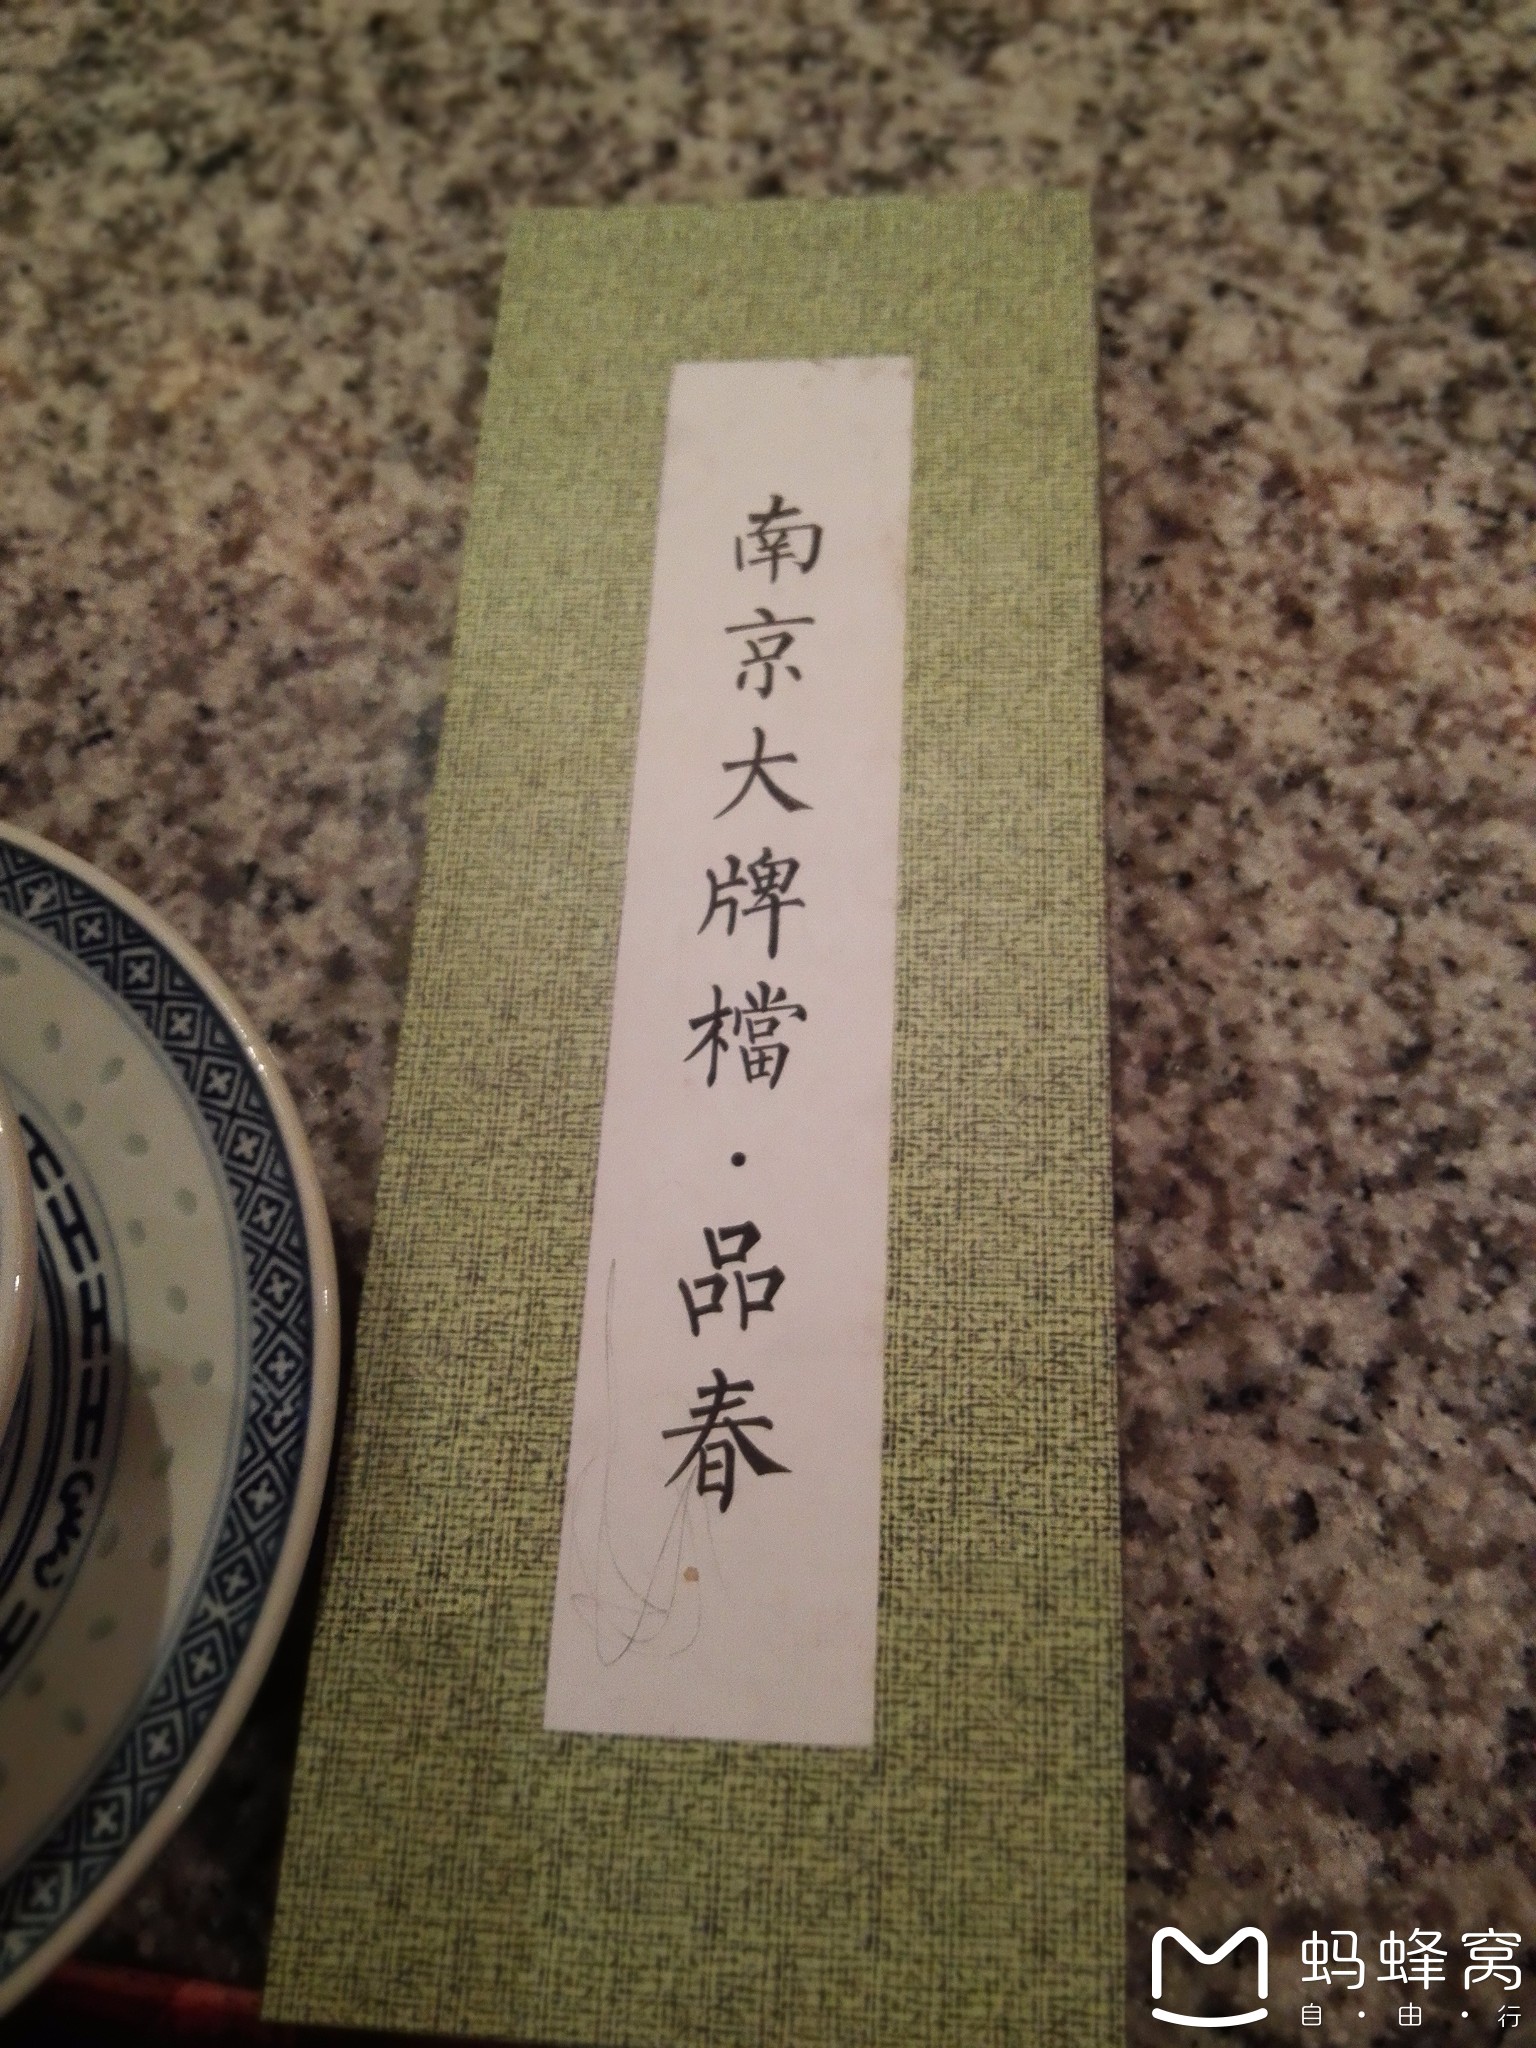 南京大牌檔·品春
蚂蜂窝
自·由·行